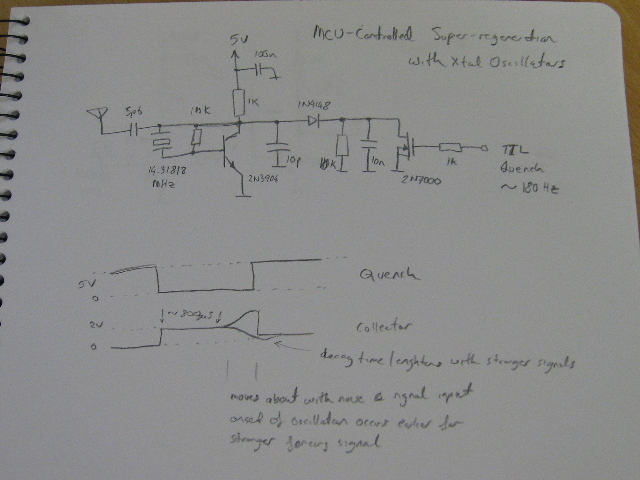 MCU-Controlled Super-regeneration
with Xtal Oscillators
5V
100n
1K
3p6
1N4148
14.31818
MHz
2N3904
10p
10n
2N7000
1K
TTL
Quench
~ 180 Hz
5V
0
Quench
~300µs
2V
0
Collector
decay time lenghtens with stronger signals
moves about with noise & signal input
onset of oscillation occurs earlier for
stronger forcing signal